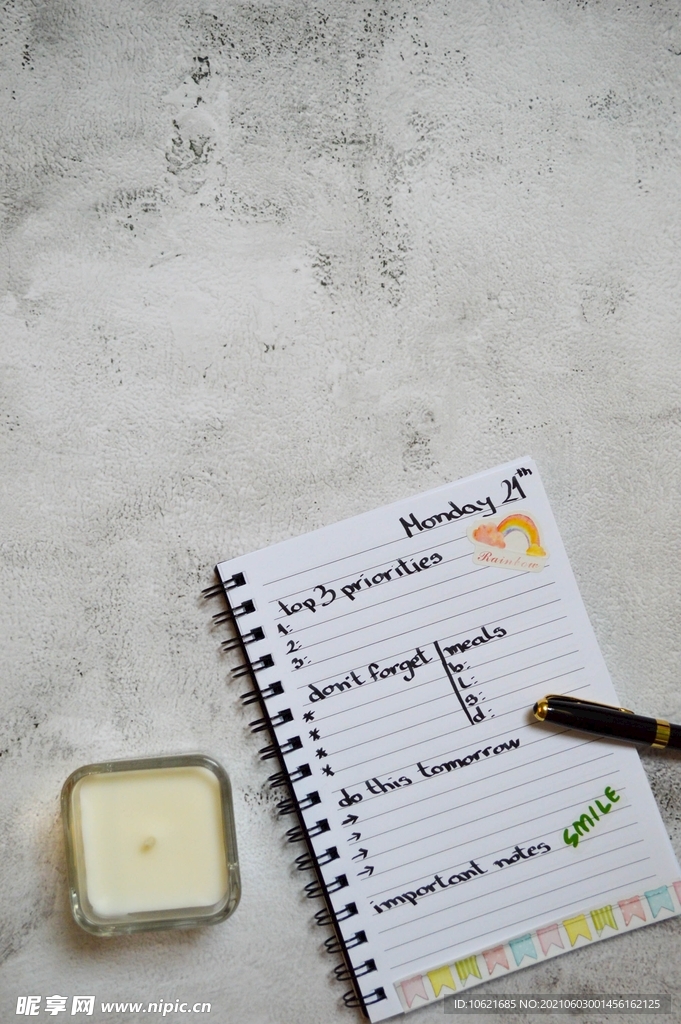 Monday 21th
Rainbow
top 3 priorities
1:
2:
3:
don't forget
*
*
*
*
meals
b:
L:
s:
d:
do this tomorrow
→
→
→
→
important notes
SMILE
昵享网 www.nipic.cn
ID:10621685 NO:20210603001456162125